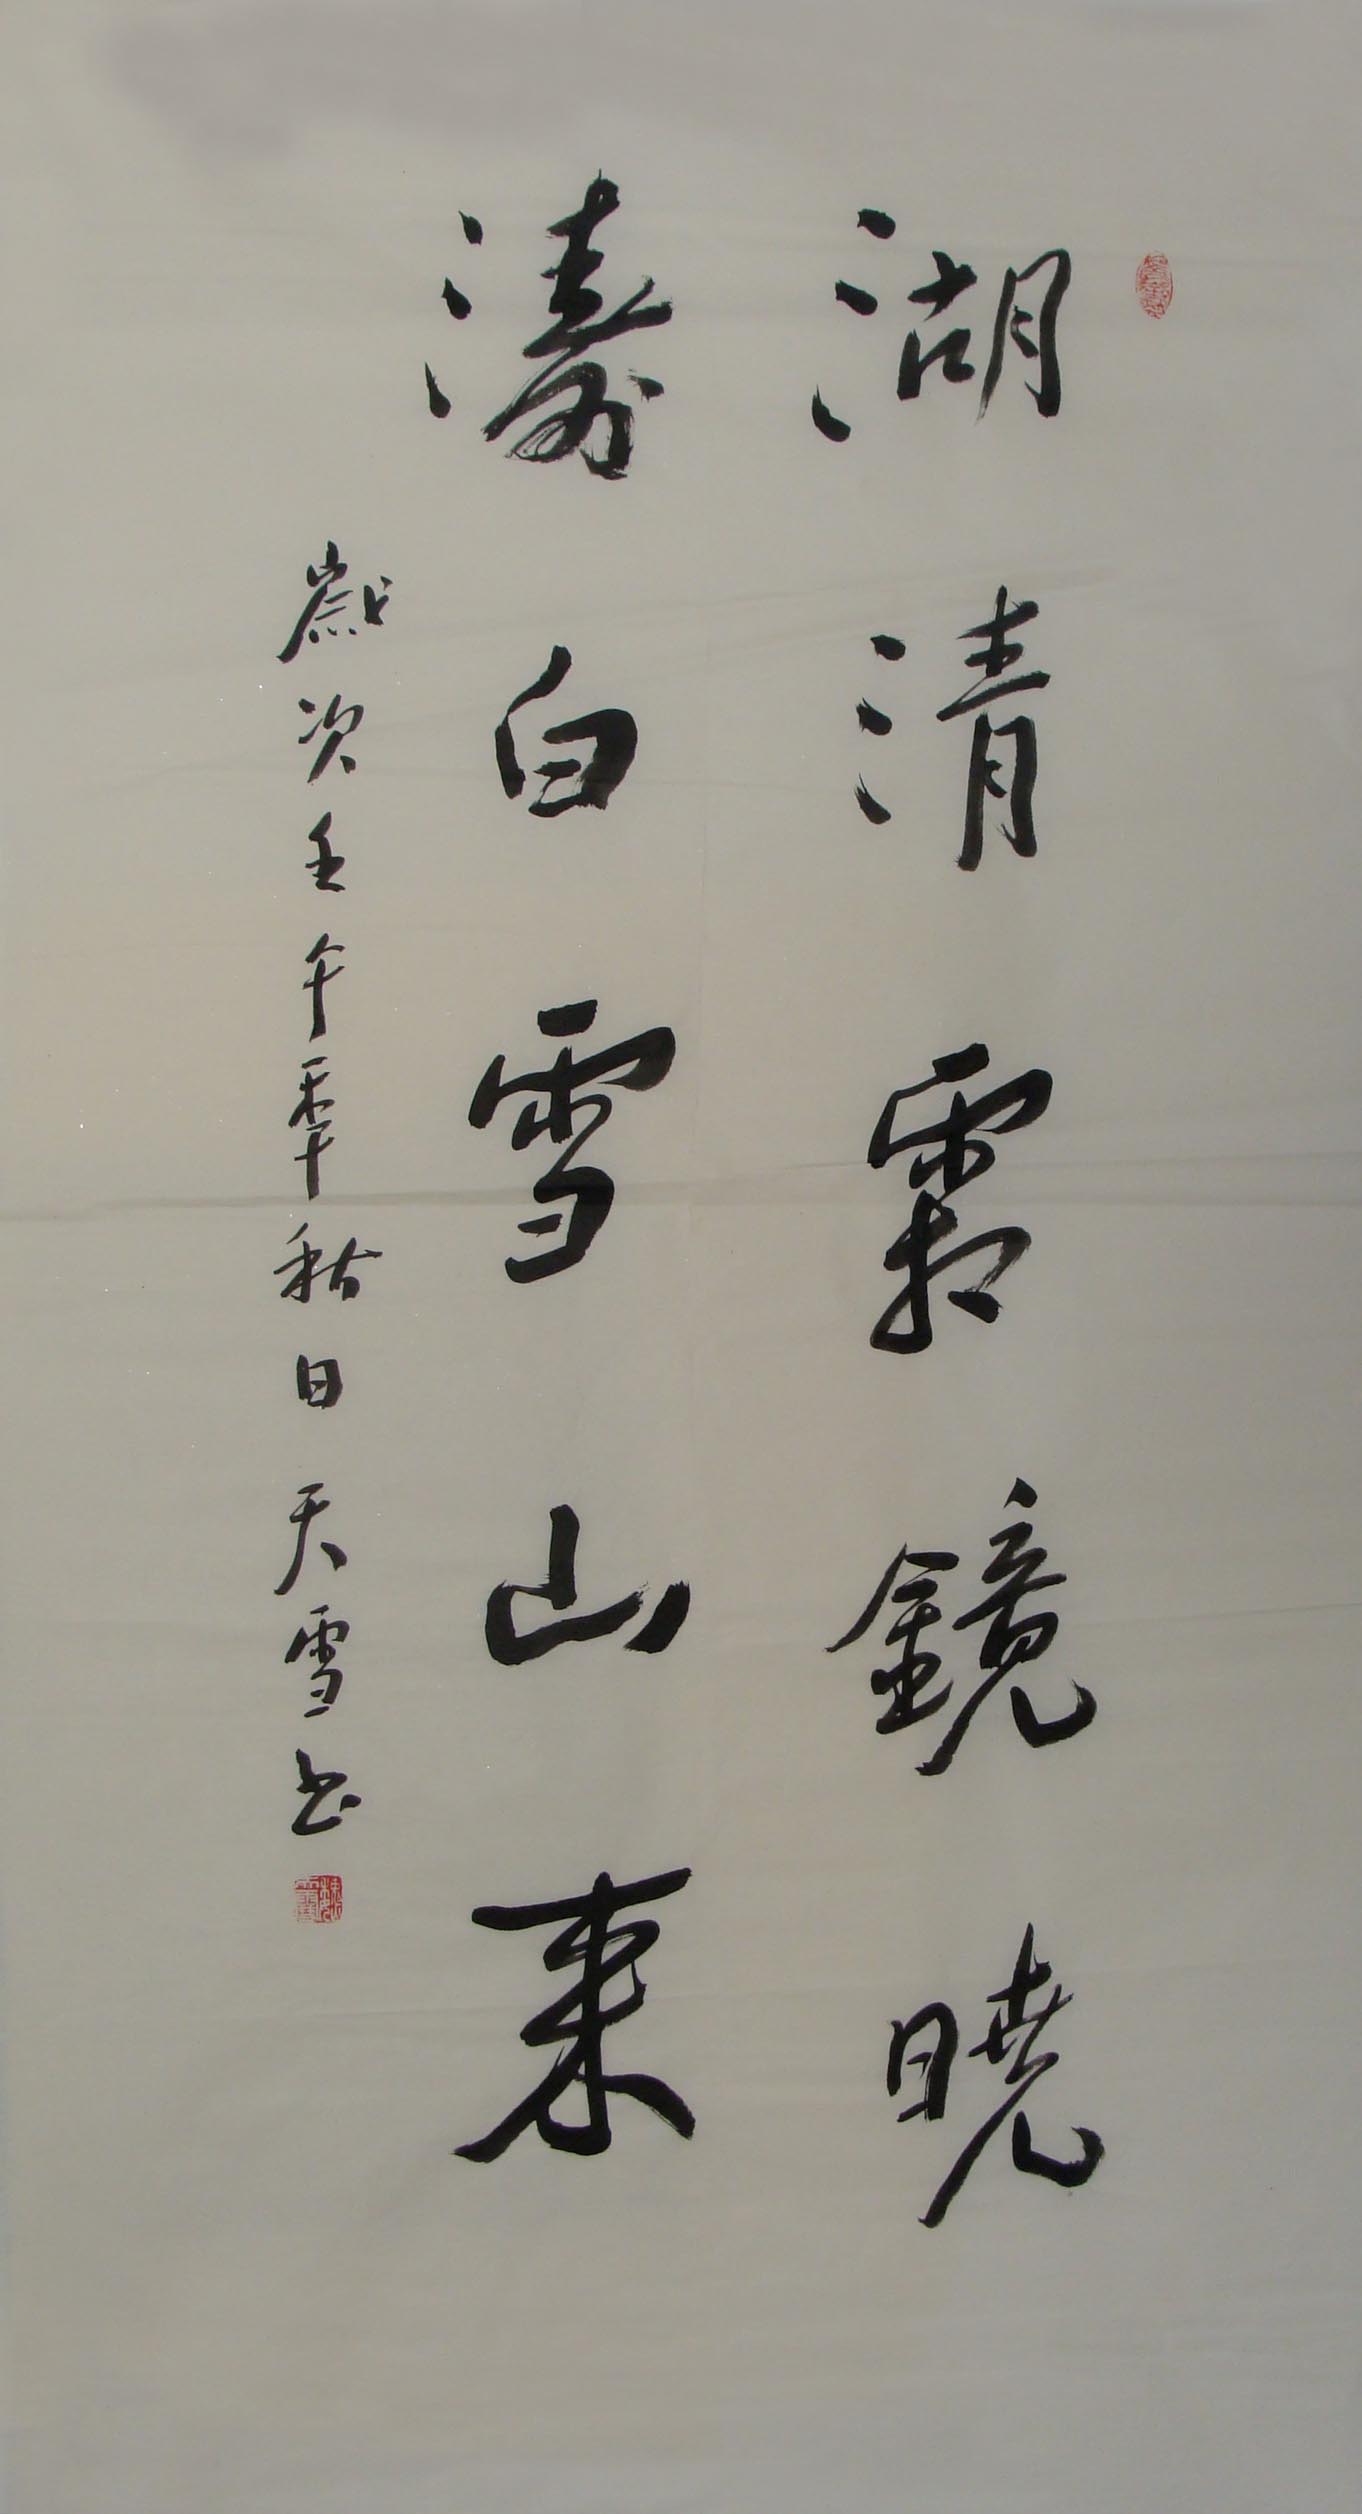 湖清霜鏡曉
濤白雪山来
歲次壬午年秋日天雪书